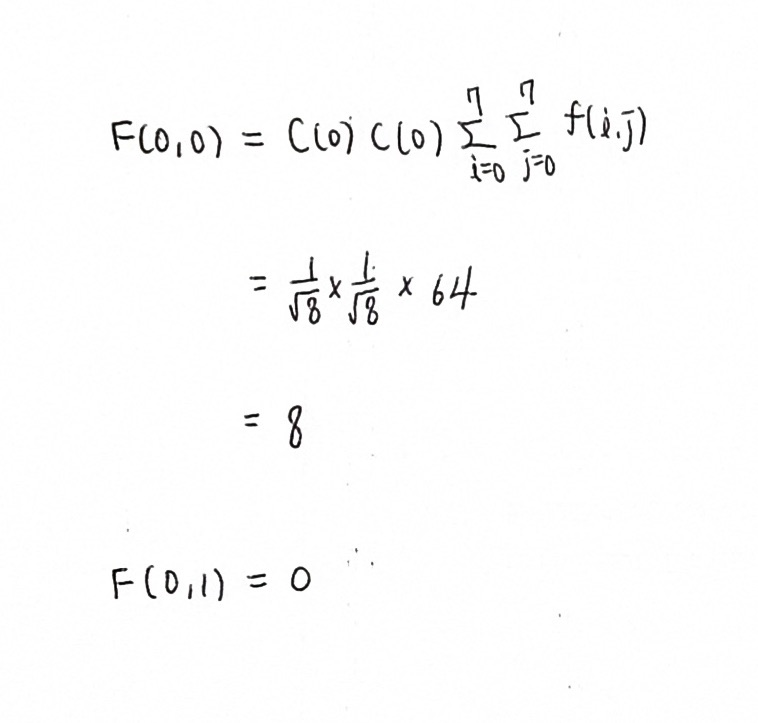 F(0,0) = C(0) C(0) Σ_{i=0}^{7} Σ_{j=0}^{7} f(i,j)
= 1/√8 × 1/√8 × 64
= 8
F(0,1) = 0